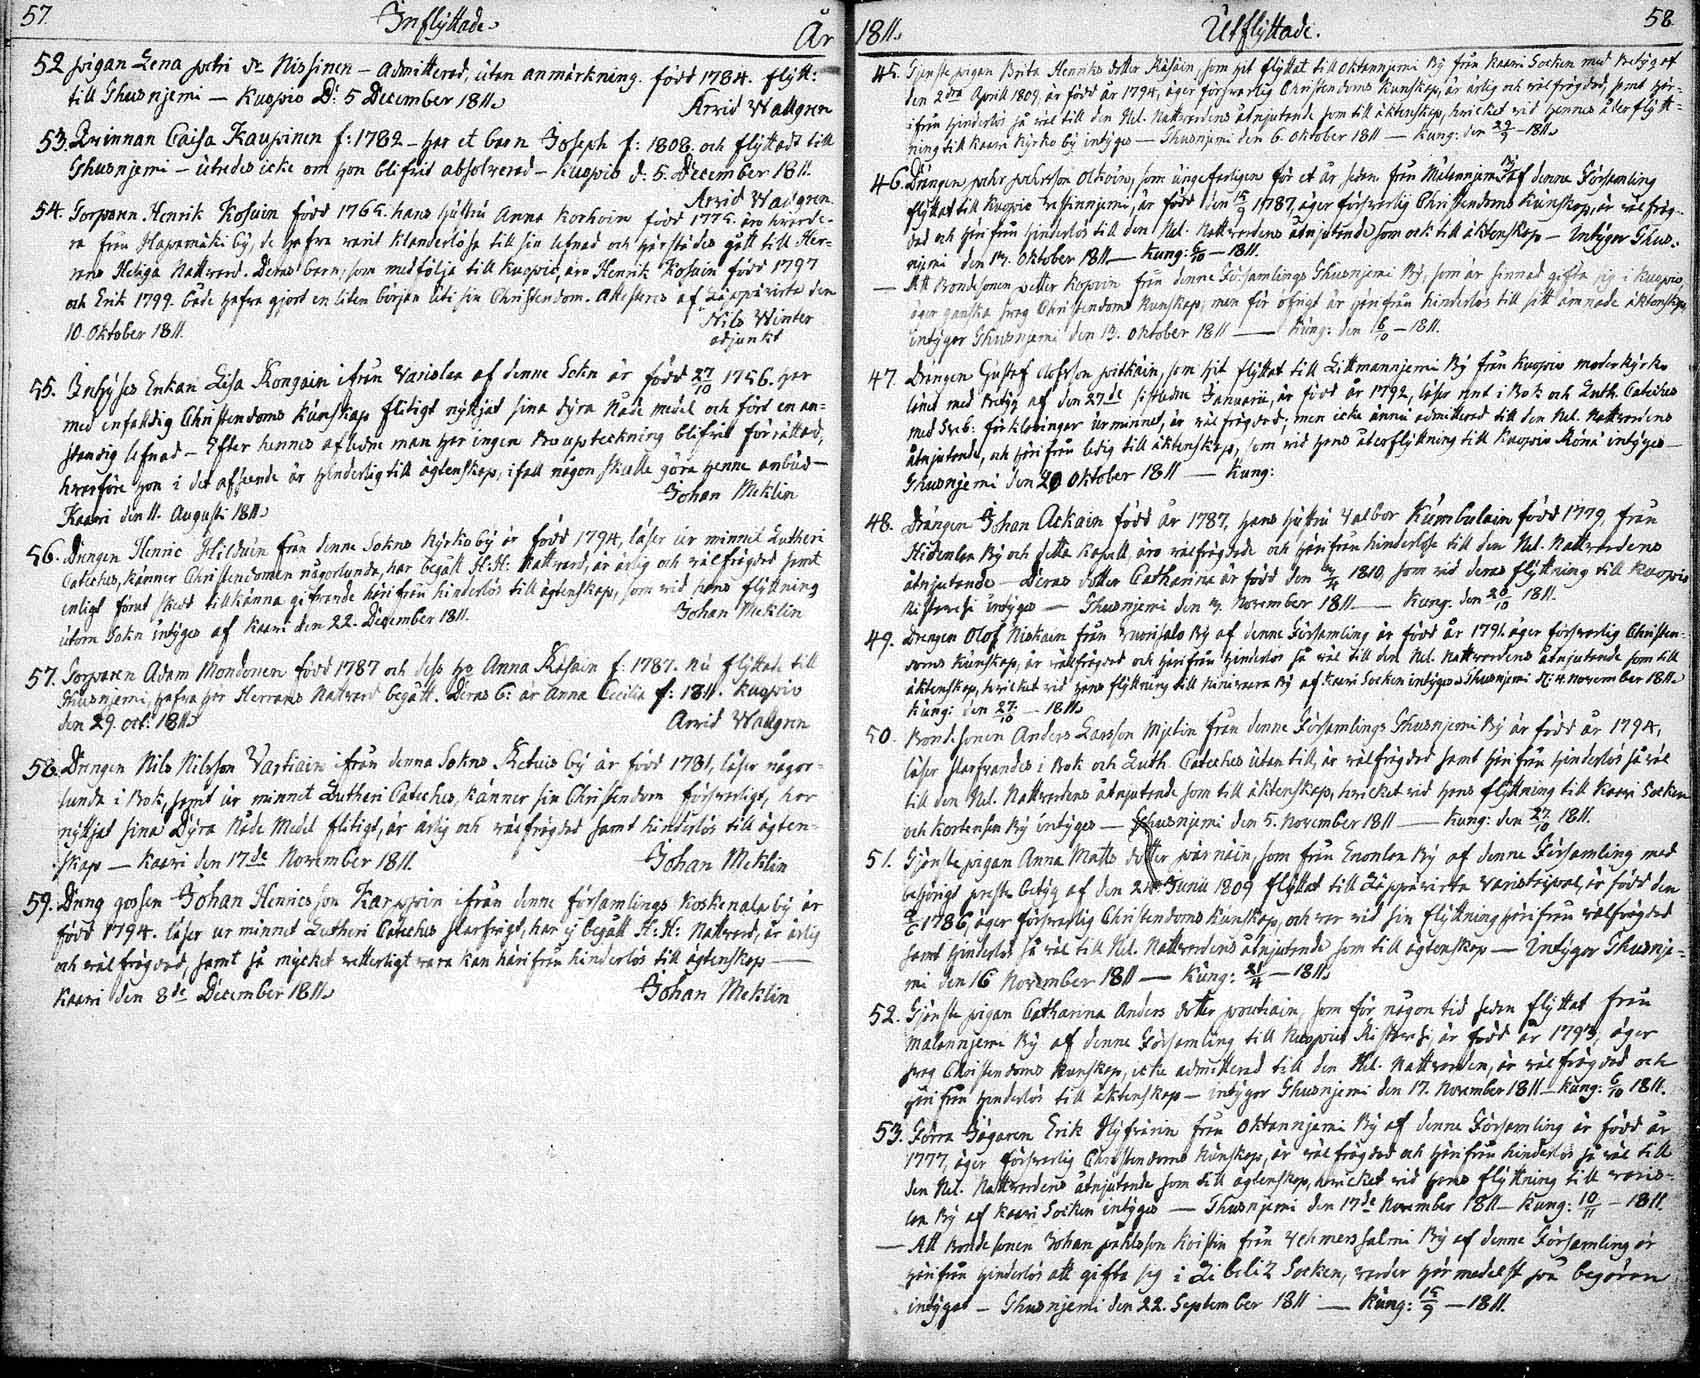 57. Inflyttade. År
52 pigan Lena petri dr Nissinen – admitterad, utan anmärkning. född 1784. flytt:
till Thusnjemi – Kuopio D: 5 December 1811.
Arvid Wallgren
53. Qvinnan Caisa Kaupinen f: 1782 – har et barn Joseph f: 1808. och flyttadt till
Thusnjemi – utredes icke om hon blifvit absolverad – Kuopio d: 5. December 1811.
Arvid Wallgren
54. Torparen Henrik Kosuin född 1765. hans hustru Anna Korhoin född 1775. äro hvarde-
ra från Hapamäki by, de hafva varit klanderlösa till sin lefnad och härstädes gått till Her-
rens Heliga Nattvard. Deras barn, som medfölja till Kuopio, äro Henrik Kosuin född 1797
och Erik 1799. både hafva gjort en liten början uti sin Christendom. Attesteres af Läppävirta den
10. Oktober 1811.
Nils Winter
adjunkt
55. Inhyses Enkan Lisa Kongain ifrån Varislax af denne Sokn är född 27/10 1756. har
med enfaldig Christendoms kunskap flitigt nyttjat sina dyra Nåde medel och fört en an-
ständig lefnad – Efter hennes aflidne man har ingen Bouptekning blifvit förrättad,
hvarföre hon i det afseende är hinderlig till ägtenskap, ifall någon skulle göra henne anbud –
Kaavi den 11. Augusti 1811.
Johan Meklin
56. Drengen Henric Hilduin från denne Sokns Kyrkoby är född 1794, läser ur minnet Lutheri
Cateches, känner Christendomen någorlunda, har begått H: H: Nattvard, är ärlig och välfrägdad samt
enligt förut skedt tillkänna gifvande härifrån hinderlös till ägtenskap, som vid hans flyttning
utom Sokn intyges af Kaavi den 22. December 1811.
Johan Meklin
57. Torparen Adam Mondonen född 1787 och dess ho Anna Kasuin f: 1787. nu flyttade till
Thusnjemi, hafva här Herrans Nattvard begått. Deras b: är Anna Cecilia f: 1811. Kuopio
den 29. oct: 1811.
Arvid Wallgren
58. Drengen Nils Nilsson Vartiain ifrån denna Sokns Retuis by är född 1781, läser någor-
lunda i Bok, samt ur minnet Lutheri Cateches, känner sin Christendom försvarligt, har
nyttjat sina Dyra Nåde Medel flitigt, är ärlig och välfrägdad samt hinderlös till ägten-
skap – Kaavi den 17de November 1811.
Johan Meklin
59. Dräng gossen Johan Henricsson Karppin ifrån denne församlings Koskenala by är
född 1794. läser ur minnet Lutheri Cateches slarfvigt, har ej begått H: H: Nattvard, är ärlig
och välfrägdad, samt så mycket vetterligt vara kan härifrån hinderlös till ägtenskap –
Kaavi den 8de December 1811.
Johan Meklin
1811. Utflyttade. 58
45. Tjenste pigan Brita Henriks dotter Räsäin, som hit flyttat till Oktannjemi By från Kaavi Socken med Betyg af
den 2dra Aprill 1809, är född år 1794, äger försvarlig Christendoms kunskap, är ärlig och välfrägdad, samt här-
ifrån hinderlös så väl till den Hel. Nattvardens åtnjutande som till äktenskap, hvilket vid hennes återflytt-
ning till Kaavi Kyrko by intyges – Thusnjemi den 6. Oktober 1811 – Kung: den 29/9 – 1811.
46. Drängen pehr pehrsson Olkoin, som ungefärligen för et år sedan från Mälannjemi By af denne Församling
flyttat till Kuopio Vessinnjemi, är född den 15/9 1787, äger försvarlig Christendoms kunskap, är välfräg-
dad och härifrån hinderlös till den Hel. Nattvardens åtnjutande som ock till äktenskap – Intygar Thus-
njemi den 13. Oktober 1811 – Kung: 6/10 – 1811.
– Att Bondesonen petter Kopoin från denne Församlings Thusnjemi By, som är sinnad gifta sig i Kuopio,
äger ganska svag Christendoms kunskap, men för öfrigt är härifrån hinderlös till sitt ämnade äktenskap,
intygar Thusnjemi den 13. Oktober 1811 – Kung: den 6/10 – 1811.
47. Drängen Gustaf Olofsson pitkäin, som hit flyttat till Littmannjemi By från Kuopio moderkyrko
länet med Betyg af den 27de sistledne Januarii, är född år 1792, läser rent i Bok och Luth. Cateches
med Sveb: förklaringar ur minnet, är välfrägdad, men icke ännu admitterad till den Hel. Nattvardens
åtnjutande, och härifrån ledig till äktenskap, som vid hans återflyttning till Kuopio Rönä intyges –
Thusnjemi den 20 Oktober 1811 – Kung:
48. Drängen Johan Ackain född år 1787, hans hustru Valbor Kumbulain född 1779, från
Hidenlax By och detta Kapell, äro välfrägdade och härifrån hinderlöse till den Hel. Nattvardens
åtnjutande – Deras dotter Catharina är född den 1810, som vid deras flyttning till Kuopio
Ristavesi intyges – Thusnjemi den 3. November 1811 – Kung: den 20/10 1811.
49. Drengen Olof Niskain från Vuorisalo By af denne Församling är född år 1791. äger försvarlig Christen-
doms kunskap, är välfrägdad och härifrån hinderlös så väl till den Hel. Nattvardens åtnjutande som till
äktenskap, hvilket vid hans flyttning till Ninivaara By af Kaavi Socken intyges Thusnjemi d: 4. November 1811.
Kung: den 27/10 – 1811.
50. Bonde sonen Anders Larsson Mjelin från denne Församlings Thusnjemi By är född år 1794,
läser slarfvandes i Bok och Luth. Cateches utan till, är välfrägdad samt härifrån hinderlös så väl
till den Hel. Nattvardens åtnjutande som till äktenskap, hvilket vid hans flyttning till Kaavi Socken
och Kortensen By intyges – Thusnjemi den 5. November 1811 – Kung: den 27/10 1811.
51. Tjenste pigan Anna Matts dotter pärnäin, som från Enonlax By af denne Församling med
behörigt preste betyg af den 24. Junii 1809 flyttat till Läppävirta Varistaipal, är född den
1786, äger försvarlig Christendoms kunskap, och var vid sin flyttning härifrån välfrägdad
samt hinderlös så väl till Hel. Nattvardens åtnjutande som till ägtenskap – Intygar Thusnje-
mi den 16 November 1811 – Kung: 21/4 – 1811.
52. Tjenste pigan Catharina Anders dotter poutiain, som för någon tid sedan flyttat från
Malannjemi By af denne Församling till Kuopio Ristavesi, är född år 1793, äger
svag Christendoms kunskap, icke admitterad till den Hel. Nattvarden, är välfrägdad och
härifrån hinderlös till äktenskap – intygar Thusnjemi den 17. November 1811 – Kung: 6/10 1811.
53. Förra Jägaren Erik Hyfvärin från Oktannjemi By af denne Församling är född år
1777, äger försvarlig Christendoms kunskap, är välfrägdad och härifrån hinderlös så väl till
den Hel. Nattvardens åtnjutande som till ägtenskap, hvilket vid hans flyttning till Varis-
lax By af Kaavi Socken intyges – Thusnjemi den 17de November 1811 – Kung: 10/11 – 1811.
– Att Bondesonen Johan pehlsson Koistin från Vehmersalmi By af denne Församling är
härifrån hinderlös att gifta sig i Libelitz Socken, varder härmedelst på begäran
intygat – Thusnjemi den 22. September 1811 – Kung: 15/9 – 1811.